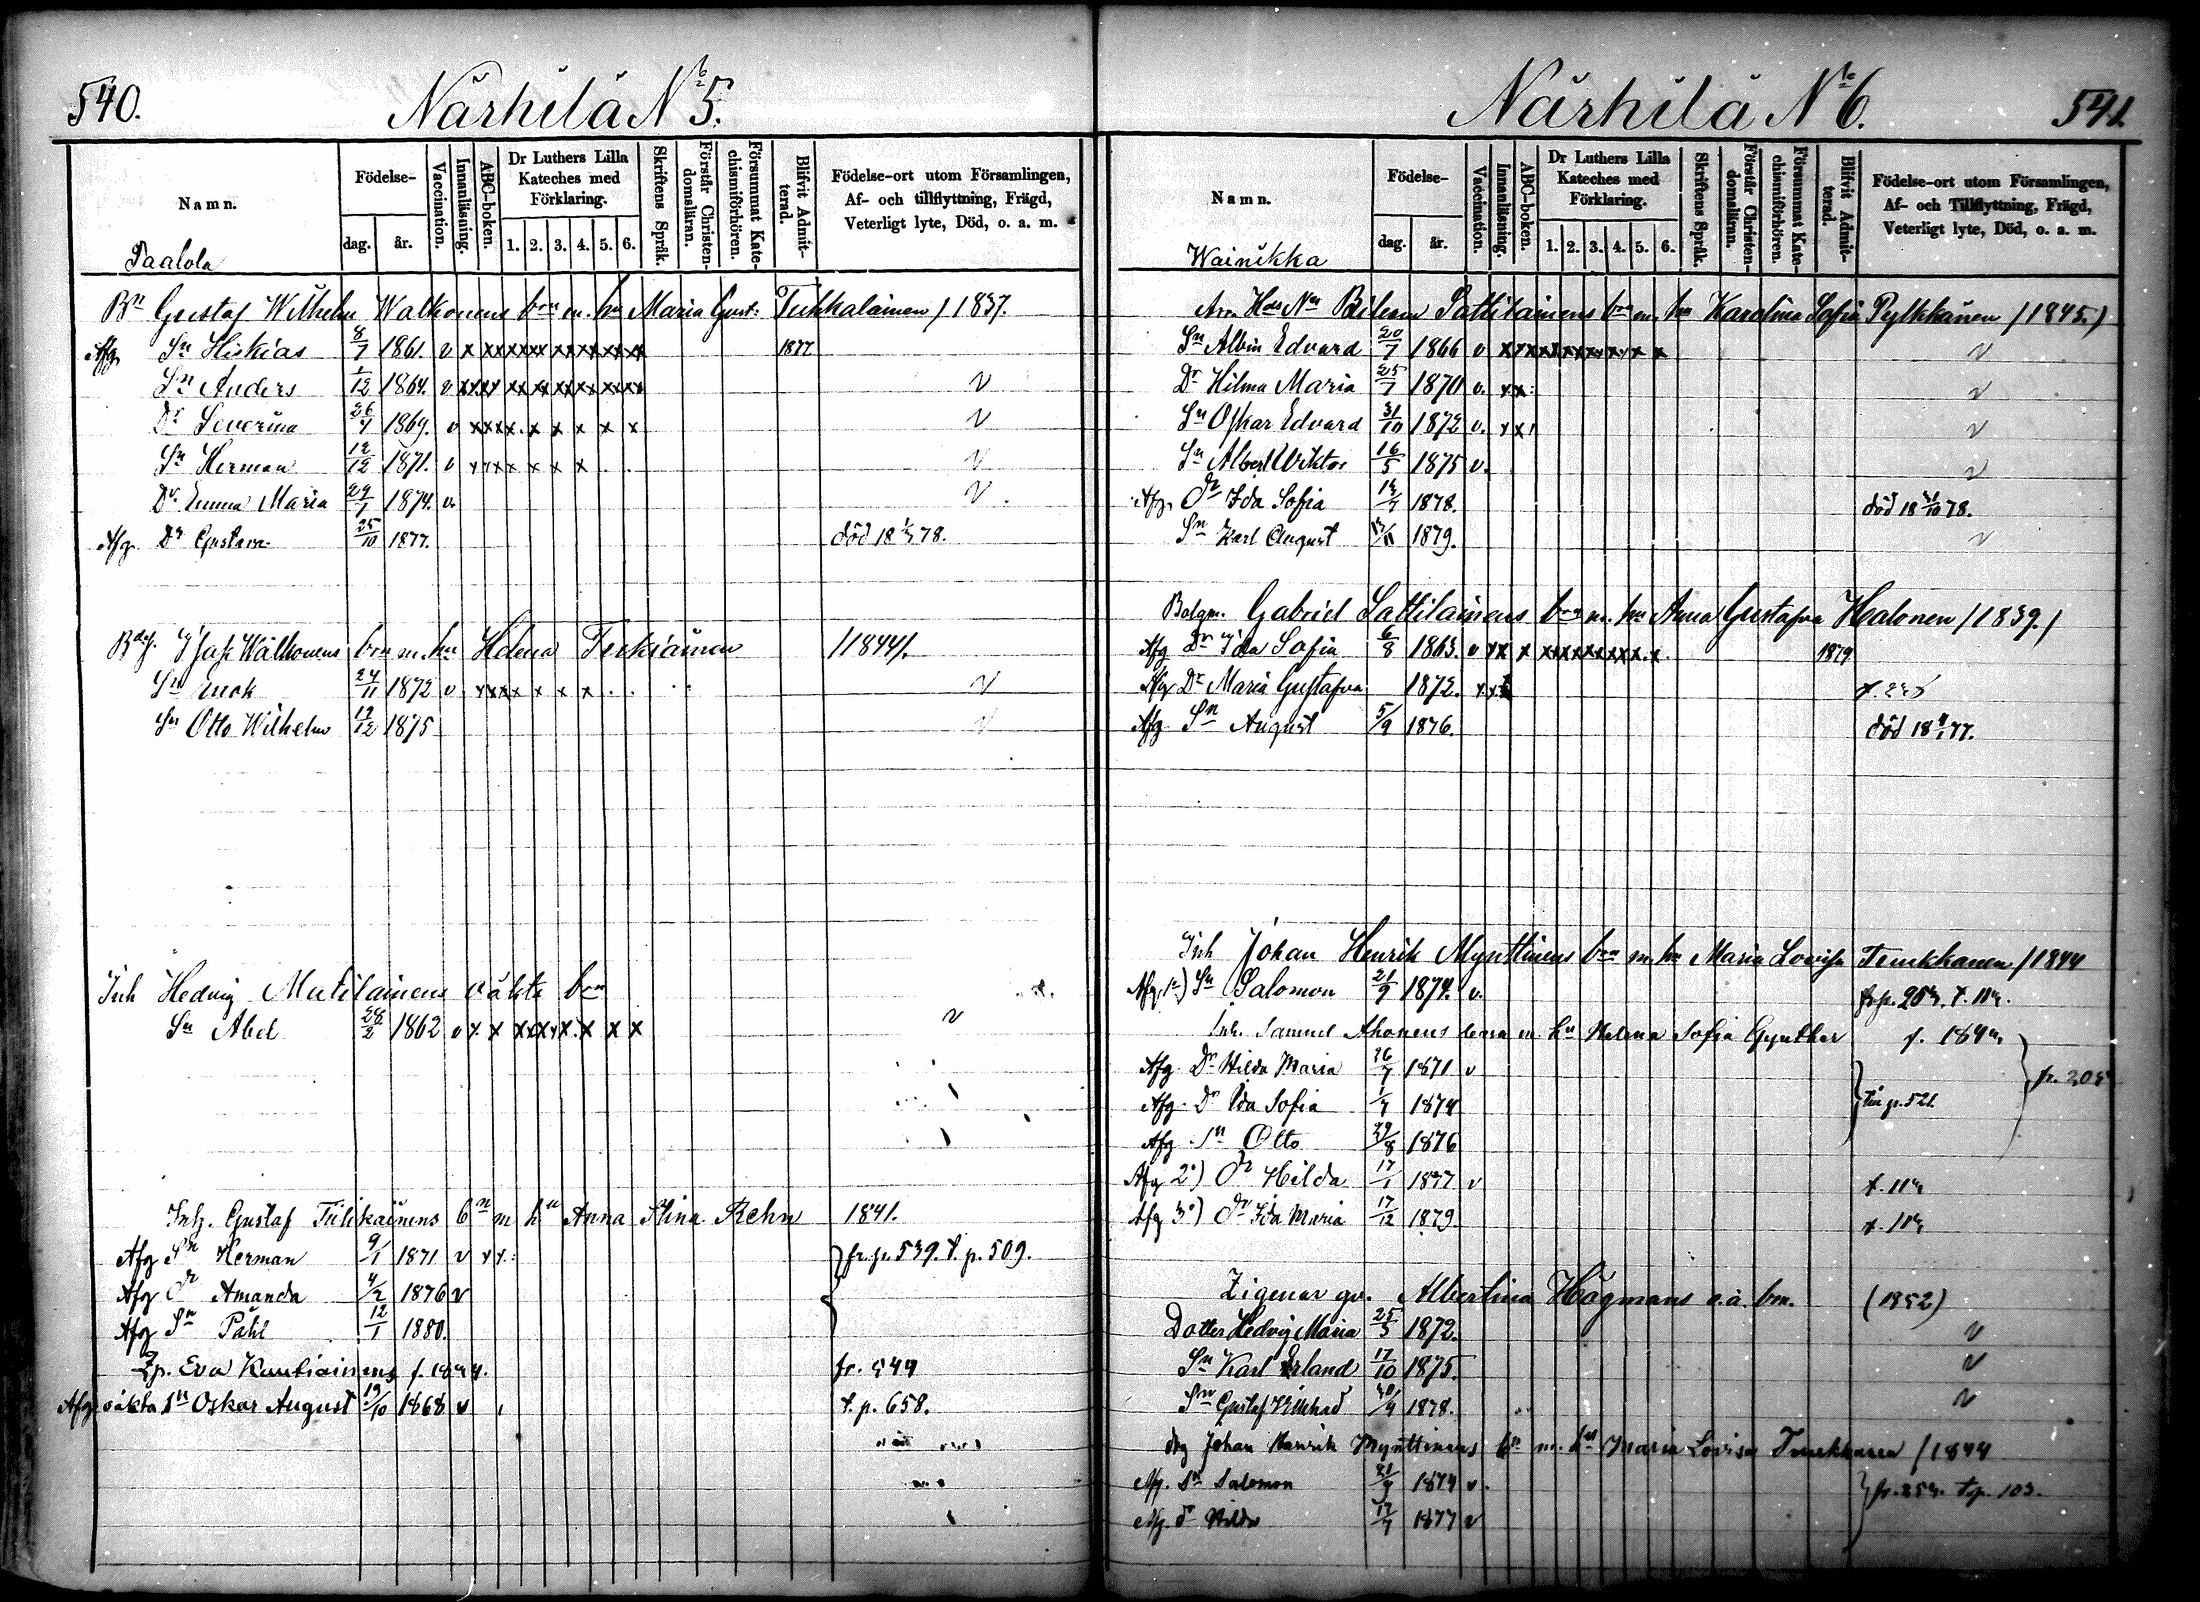 540.
Närhilä No 5.
Namn.
Födelse-
dag.
år.
Vaccination.
Innanläsning.
ABC-boken.
Dr Luthers Lilla Kateches med Förklaring.
1. 2. 3. 4. 5. 6.
Skriftens Språk.
Förstår Christendomsläran.
Försummat Katechismiförhören.
Blifvit Admitterad.
Födelse-ort utom Församlingen,
Af- och tillflyttning, Frägd,
Veterligt lyte, Död, o. a. m.
Paalola
Bn Gustaf Wilhelm Walkonens bn m. hu Maria Gust: Tukkalainen / 1837.
Afg. Sn Hiskias 8/7 1861. v x xx xx xx xx xx xx xx 1877
Sn Anders 1/12 1864. v xxxx xx xx xx xx xxxx v
Dr Severina 26/7 1869. v xxxx. x x x x x v
Sn Herman 12/12 1871. v xxxx x x x . . v
Dr. Emma Maria 29/1 1874. v. v.
Afg. Dr Gustava 25/10 1877. död 18 1/5 78.
Walkonens bn m. hu Helena 11844/.
Sn Enok 24/11 1872 v xxxx x x x . . v
Sn Otto Wilhelm 12/12 1875 v
Inh Hedvig Matilainens oäkta bn
Sn Abel 28/2 1862 v x. x xxxx x. x x x v
Inh. Gustaf Tiihkainens bn m hu Anna Stina Rehn 1841.
Afg Sn Herman 9/1 1871 v xx. fr. p. 539. t. p. 509.
Afg Dr Amanda 4/2 1876 v
Afg Sn Påhl 12/1 1880.
Eva Kautiainens fr. 544
Afg oäkta Sn Oskar August 19/10 1868 v t. p. 658.
541.
Närhilä No 6.
Namn.
Födelse-
dag.
år.
Vaccination.
Innanläsning.
ABC-boken.
Dr Luthers Lilla Kateches med Förklaring.
1. 2. 3. 4. 5. 6.
Skriftens Språk.
Förstår Christendomsläran.
Försummat Katechismiförhören.
Blifvit Admitterad.
Födelse-ort utom Församlingen,
Af- och Tillflyttning, Frägd,
Veterligt lyte, Död, o. a. m.
Wainikka
Bileam Lattilainens bn m. hu Karolina Sofia Pylkkänen / 1845. )
Sn Albin Edvard 20/7 1866 v xxxxxxxxxx x x v
Dr Hilma Maria 25/7 1870 v. xx: v
Sn Oskar Edvard 31/10 1872 v. xx: v
Sn Albert Wiktor 16/5 1875 v. v
Afg. Dr Ida Sofia 1878. död 18 31/10 78.
Sn Karl August 1879. v
Gabriel Lattilainens bn m. hu Anna Gustafva Halonen / 1839. /
Afg Dr Ida Sofia 6/8 1863. v xx x xxxxxxxx. x. 1879
Afg Dr Maria Gustafva 1872. xxx
Afg. Sn August 5/9 1876. död 18 4/1 77.
Inh Johan Henrik Mynttinens bn m. hu Maria Lovisa / 1844
Afg. 1o) Sn Salomon 21/9 1874. v.
Inh. Samuel Ahonens barn m. hu Helena Sofia Gynther
Afg Dr Hilda Maria 26/7 1871 v
Afg. Dr Ida Sofia 1/7 1874 t. p. 521.
Afg. Sn Otto 29/8 1876
Afg 2o) Dr Hilda 17/1 1877 v
Afg 3o) Dr Ida Maria 17/12 1879.
Zigenar qv. Albertina Högmans o.ä. bn. (1852)
Dotter Hedvig Maria 25/3 1872. v
Sn Karl Erland 17/10 1875. v
Sn Gustaf 1878. v
Johan Henrik Mynttinens bn m. hu Maria Lovisa / 1844
Afg. Sn Salomon 21/9 1874 v. t. p. 103.
Afg. Dr Hilda 1877 v